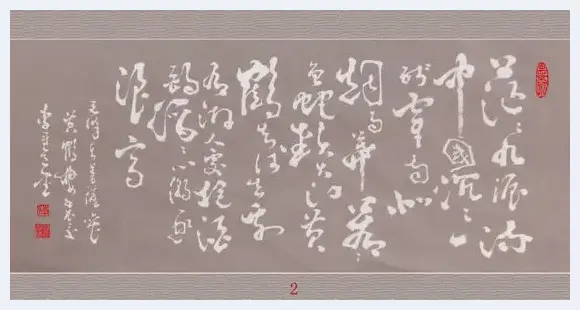 茫茫九派流
中國沉沉一
线穿南北
烟雨莽苍苍
龟蛇锁大江黄
鹤知何去剩
有游人处把酒
酹滔滔心潮逐
浪高
毛泽东菩萨蛮
黄鹤楼
2